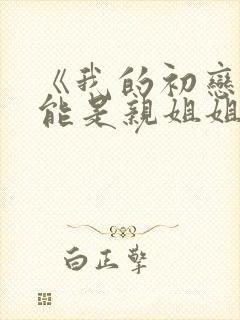 《我的初戀
能是親姐姐
白正擎